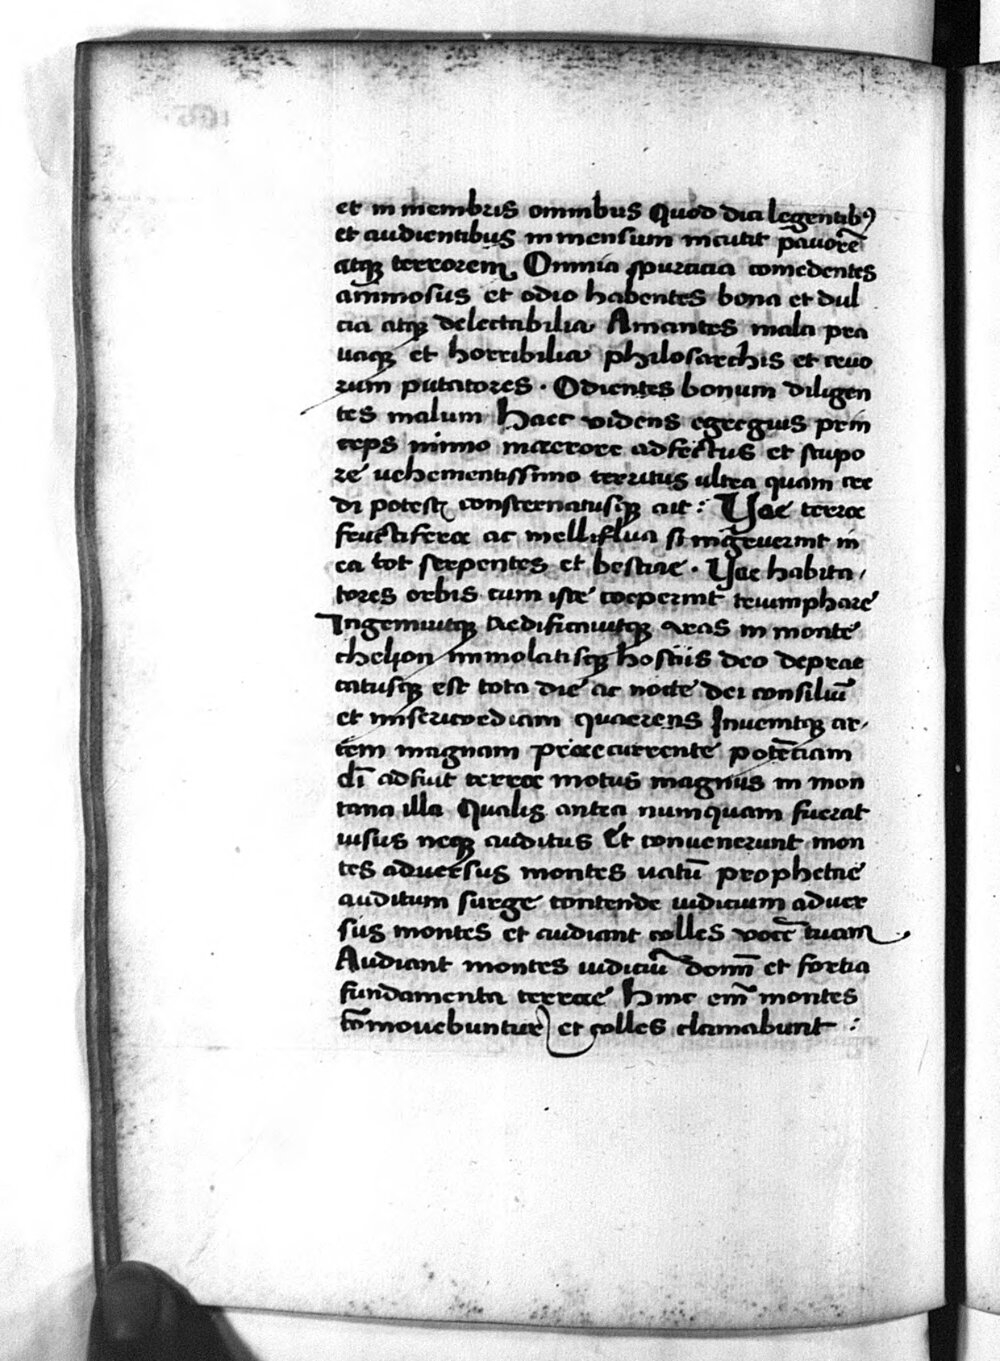 et in membris omnibus Quod dici legentibꝰ
et audientibus inmensum incutit pavorẽ
atqꝫ terrorem. Omnia spurcicia comedentes
animosus et odio habentes bona et dul
cia atqꝫ delectabilia Amantes mala pra
uaqꝫ et horribilia philosarchis et cruo
rum putatores · Odientes bonum diligen
tes malum Haec videns egregius prin
ceps nimio maerore adfectus et stupo
rẽ uehementissimo territus ultra quam cre
di potest consternatusqꝫ ait : Uae terrae
fructiferae ac melliflua si ingrueverint in
ea tot serpentes et bestiae · Uae habita /
tores orbis cum iste coeperint triumphare
Ingemuitqꝫ aedificauitqꝫ aras in monte
chelion immolatisqꝫ hostiis deo deprae
catusqꝫ est tota die ac nocte dei consiliũ
et misericordiam quaerens Inuenitqꝫ ar /
tem magnam praecurrente potẽciam
dĩ adfuit terrae motus magnus in mon
tana illa Qualis antea numquam fuerat
uisus neqꝫ auditus Et convenerunt mon
tes adversus montes uatũ prophetae
auditum surge contende iudicium adver
sus montes et audiant colles vocẽ tuam
Audiant montes iudiciũ domñ et fortia
fundamenta terrae Hinc em̃ montes
cõmovebuntur et colles clamabunt :